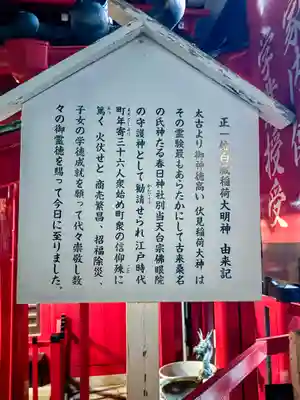 正一位白蔵稲荷大明神 由来記
太古より御神徳高い伏見稲荷大神は
その霊験最もあらたかにして古来桑名
の氏神たる春日神社別当天台宗佛眼院
の守護神として勧請せられ江戸時代
町年寄三十六人衆始め町衆の信仰殊に
篤く火伏せと商売繁昌、招福除災、
子女の学徳成就を願って代々崇敬し数
々の御霊徳を賜って今日に至りました。
学業授受